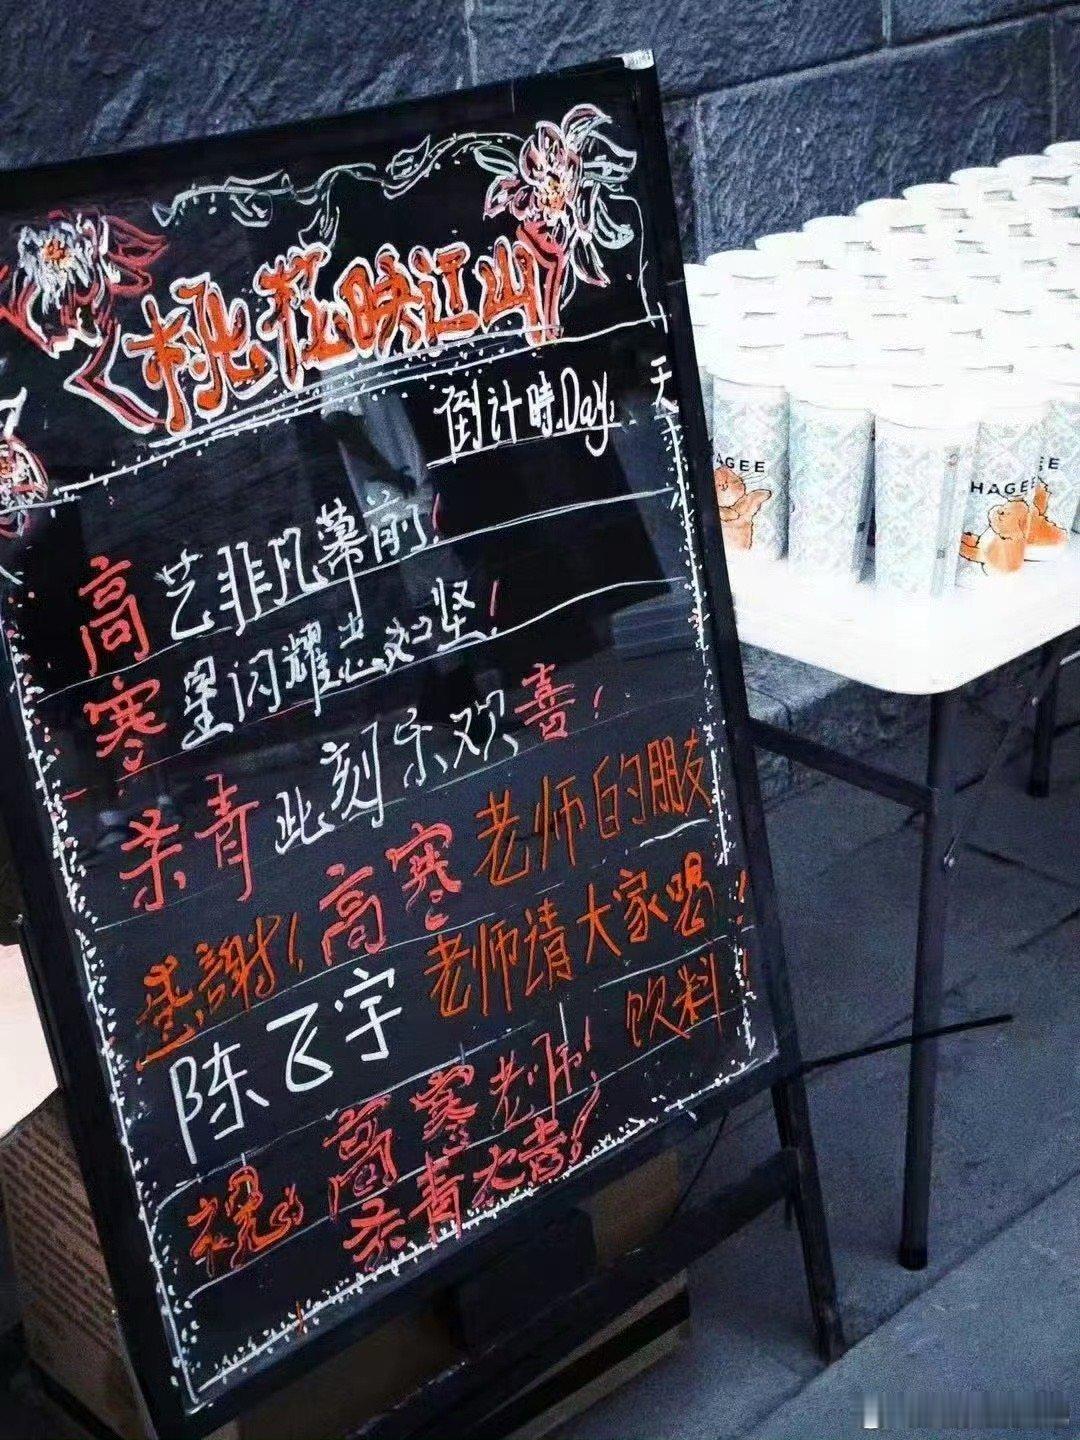 桃花映江山
倒计時Day 天
高艺非凡幕前!
寒星闪耀志如坚!
杀青此刻乐欢喜!
感謝!高寒老师的朋友
陈飞宇老师请大家喝
饮料!
祝高寒老师!
杀青大吉!
HAGEE
HAGEE